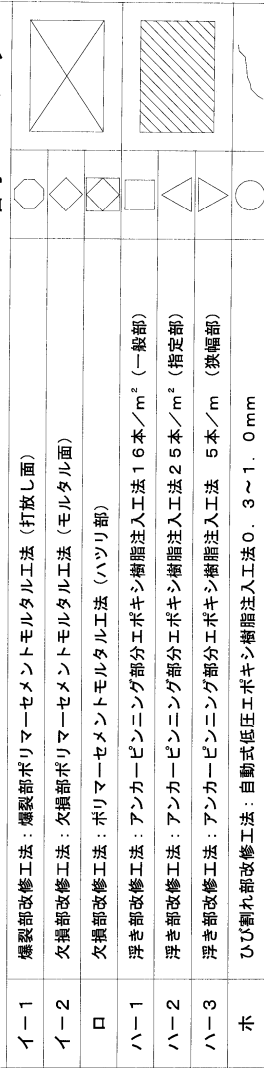 イ－１ 爆裂部改修工法：爆裂部ポリマーセメントモルタル工法（打放し面）
イ－２ 欠損部改修工法：欠損部ポリマーセメントモルタル工法（モルタル面）
ロ 欠損部改修工法：ポリマーセメントモルタル工法（ハツリ部）
ハ－１ 浮き部改修工法：アンカーピンニング部分エポキシ樹脂注入工法１６本／ｍ²（一般部）
ハ－２ 浮き部改修工法：アンカーピンニング部分エポキシ樹脂注入工法２５本／ｍ²（指定部）
ハ－３ 浮き部改修工法：アンカーピンニング部分エポキシ樹脂注入工法　５本／ｍ（狭幅部）
ホ ひび割れ部改修工法：自動式低圧エポキシ樹脂注入工法０．３～１．０ｍｍ